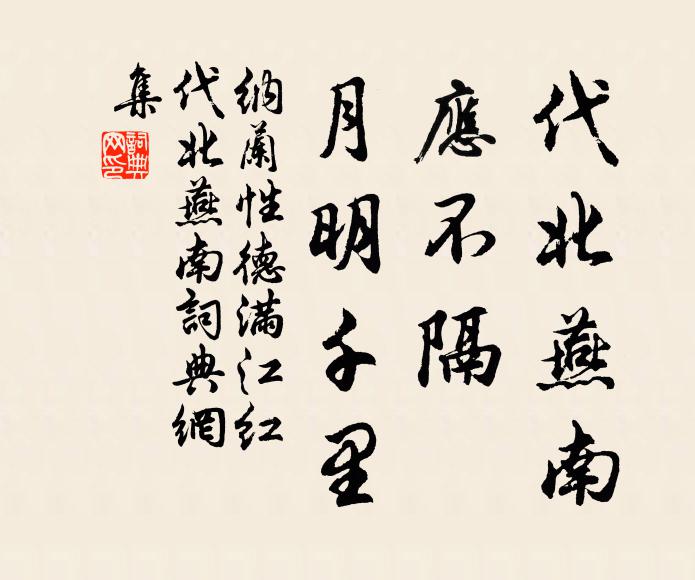 代北燕南
應不隔
月明千里
納蘭性德滿江红
代北燕南詞典網
集
詞典
网印